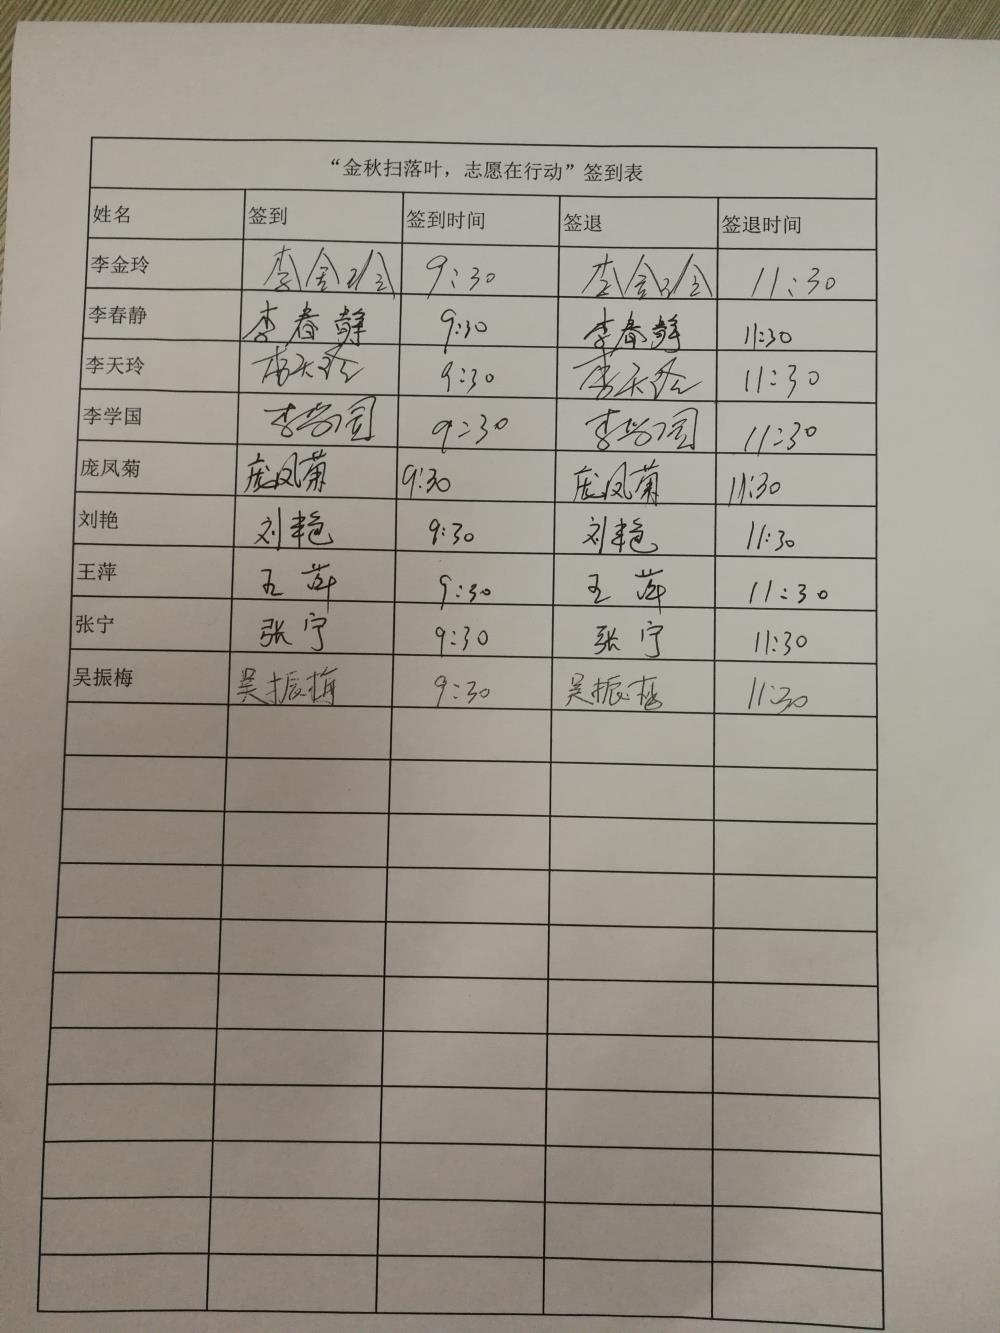 “金秋扫落叶，志愿在行动”签到表
姓名 签到 签到时间 签退 签退时间
李金玲 李金玲 9:30 李金玲 11:30
李春静 李春静 9:30 李春静 11:30
李天玲 李天玲 9:30 李天玲 11:30
李学国 李学国 9:30 李学国 11:30
庞凤菊 庞凤菊 9:30 庞凤菊 11:30
刘艳 刘艳 9:30 刘艳 11:30
王萍 王萍 9:30 王萍 11:30
张宁 张宁 9:30 张宁 11:30
吴振梅 吴振梅 9:30 吴振梅 11:30